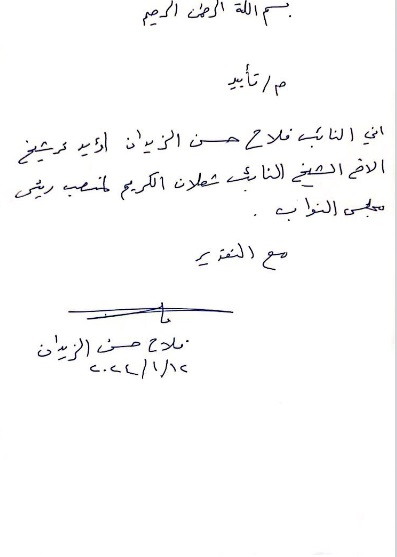 بسم الله الرحمن الرحيم
م/ تأييد
اني النائب فلاح حسن الزيدان اؤيد ترشيح
الاخ الشيخ النائب شعلان الكريم لمنصب رئيس
مجلس النواب .
مع التقدير
فلاح حسن الزيدان
٢٠٢٤/١/١٢